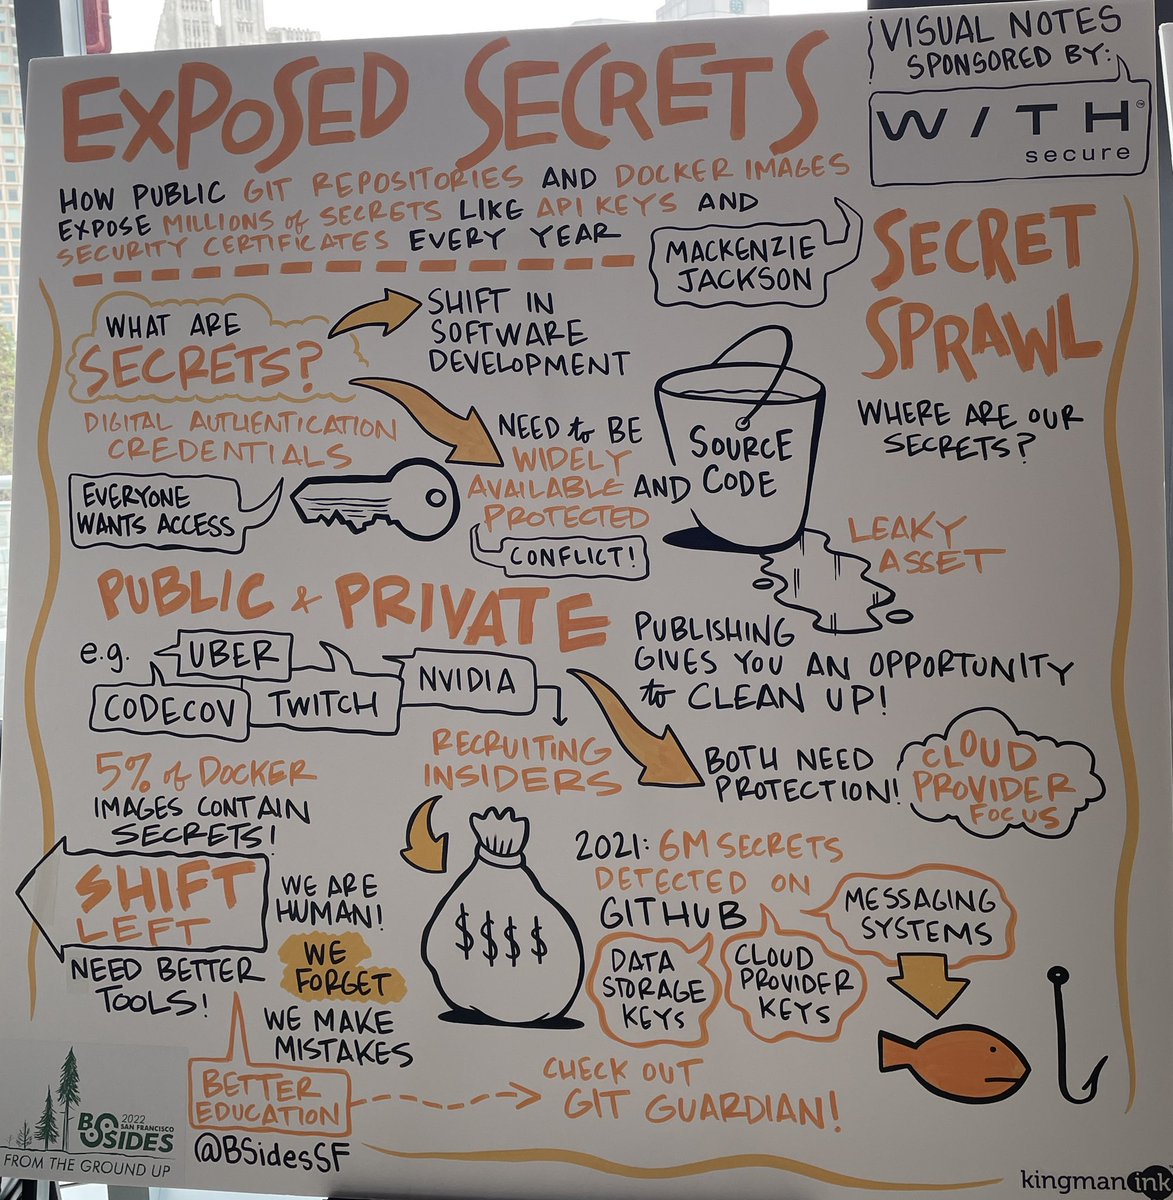 EXPOSED SECRETS
VISUAL NOTES
SPONSORED BY:
W/TH™
secure
HOW PUBLIC GIT REPOSITORIES AND DOCKER IMAGES
EXPOSE MILLIONS of SECRETS LIKE API KEYS AND
SECURITY CERTIFICATES EVERY YEAR
MACKENZIE
JACKSON
WHAT ARE
SECRETS?
SHIFT IN
SOFTWARE
DEVELOPMENT
DIGITAL AUTHENTICATION
CREDENTIALS
EVERYONE
WANTS ACCESS
NEED to BE
WIDELY
AVAILABLE AND
PROTECTED
CONFLICT!
SOURCE
CODE
SECRET
SPRAWL
WHERE ARE OUR
SECRETS?
LEAKY
ASSET
PUBLIC & PRIVATE
e.g.
UBER
CODECOV
TWITCH
NVIDIA
RECRUITING
INSIDERS
$$$$
PUBLISHING
GIVES YOU AN OPPORTUNITY
to CLEAN UP!
BOTH NEED
PROTECTION!
CLOUD
PROVIDER
FOCUS
5% of DOCKER
IMAGES CONTAIN
SECRETS!
SHIFT
LEFT
NEED BETTER
TOOLS!
WE ARE
HUMAN!
WE
FORGET
WE MAKE
MISTAKES
2021: 6M SECRETS
DETECTED ON
GITHUB
MESSAGING
SYSTEMS
DATA
STORAGE
KEYS
CLOUD
PROVIDER
KEYS
BETTER
EDUCATION
CHECK OUT
GIT GUARDIAN!
@BSidesSF
2022
SAN FRANCISCO
BSIDES
FROM THE GROUND UP
kingman ink